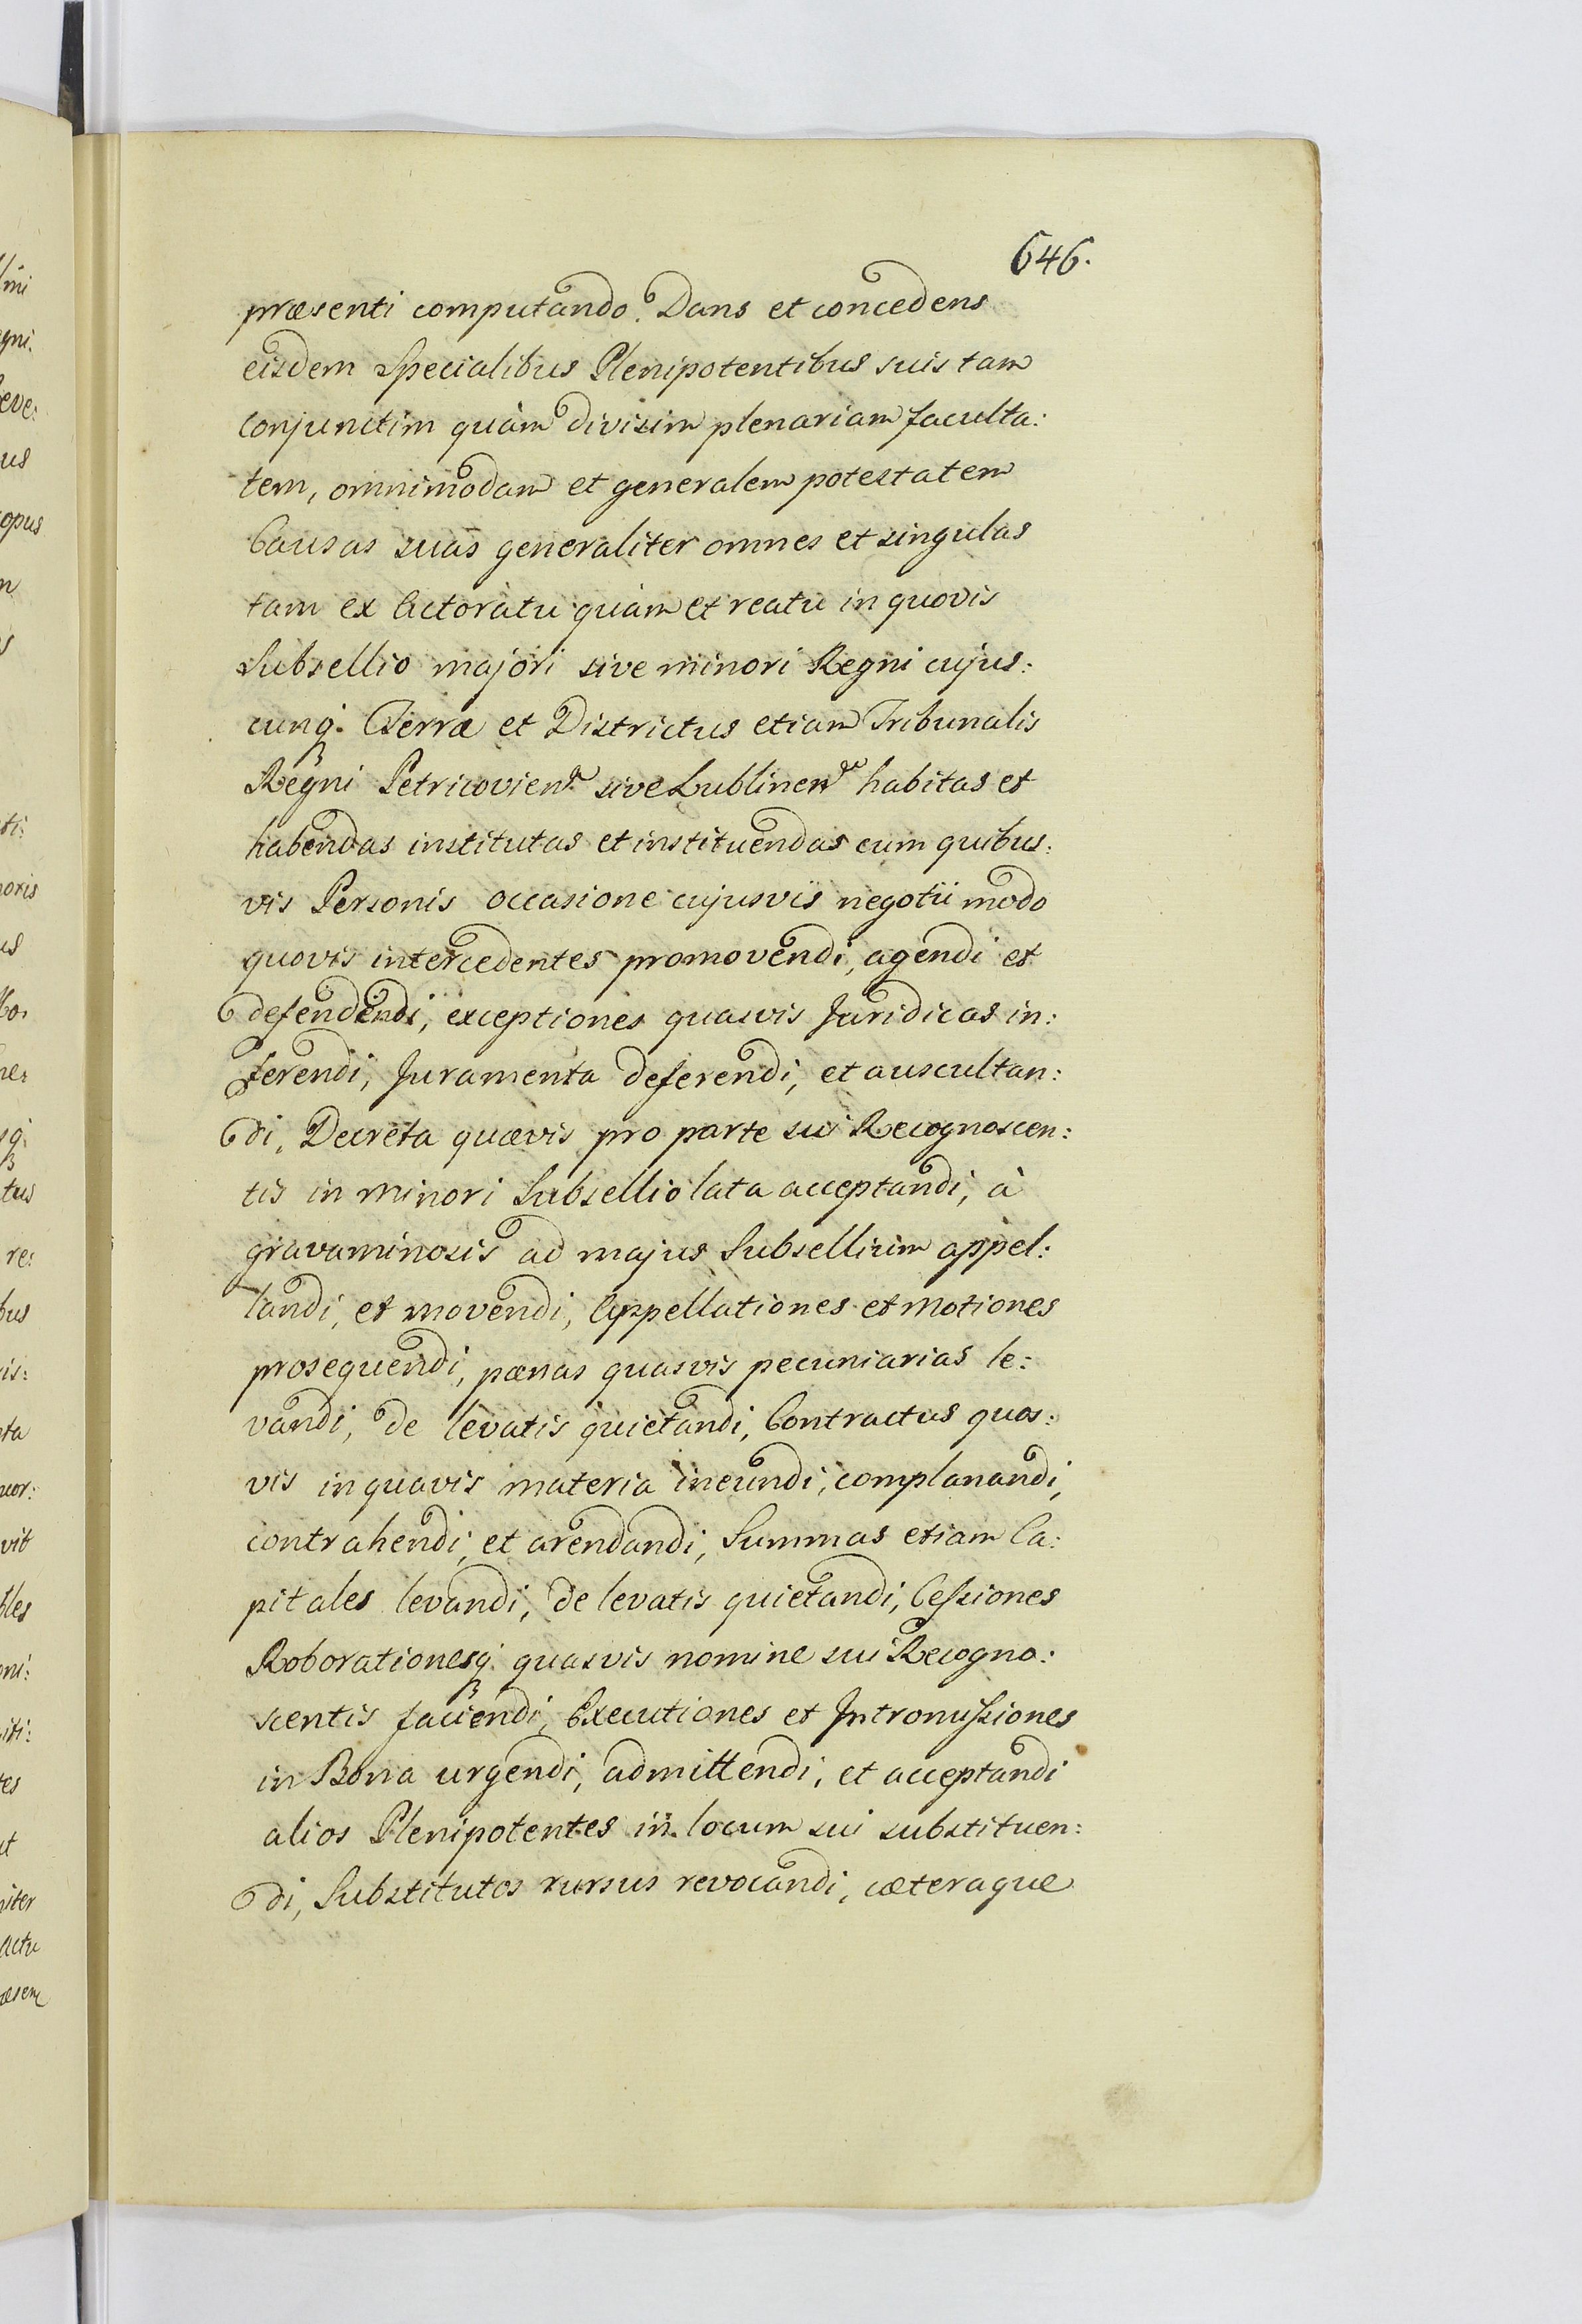 646.
præsenti computando. Dans et concedens
eisdem Specialibus Plenipotentibus suis tam
conjunctim quàm divisim plenariam faculta:
tem, omnimodam et generalem potestatem
Causas suas generaliter omnes et singulas
tam ex Actoratu quàm et reatu in quovis
Subsellio majori sive minori Regni cujus:
cunq. Terræ et Districtus etiam Tribunalis
Regni Petricovien. sive Lublinen. habitas et
habendas institutas et instituendas cum quibus:
vis Personis occasione cujusvis negotii modo
quovis intercedentes promovendi, agendi et
defendendi, exceptiones quasvis Juridicas in:
ferendi, Juramenta deferendi, et auscultan:
di, Decreta quævis pro parte sui Recognoscen:
tis in minori Subsellio lata acceptandi, à
gravaminosis ad majus Subsellium appel:
landi, et movendi, Appellationes et motiones
prosequendi, pænas quasvis pecuniarias le:
vandi, de levatis quietandi, Contractus quos:
vis in quavis materia ineundi, complanandi,
contrahendi, et arendandi, Summas etiam Ca:
pitales levandi, de levatis quietandi, Cessiones
Roborationesq. quasvis nomine sui Recogno:
scentis faciendi, Executiones et Intromissiones
in Bona urgendi, admittendi, et acceptandi
alios Plenipotentes in locum sui substituen:
di, Substitutos rursus revocandi, cæteraque